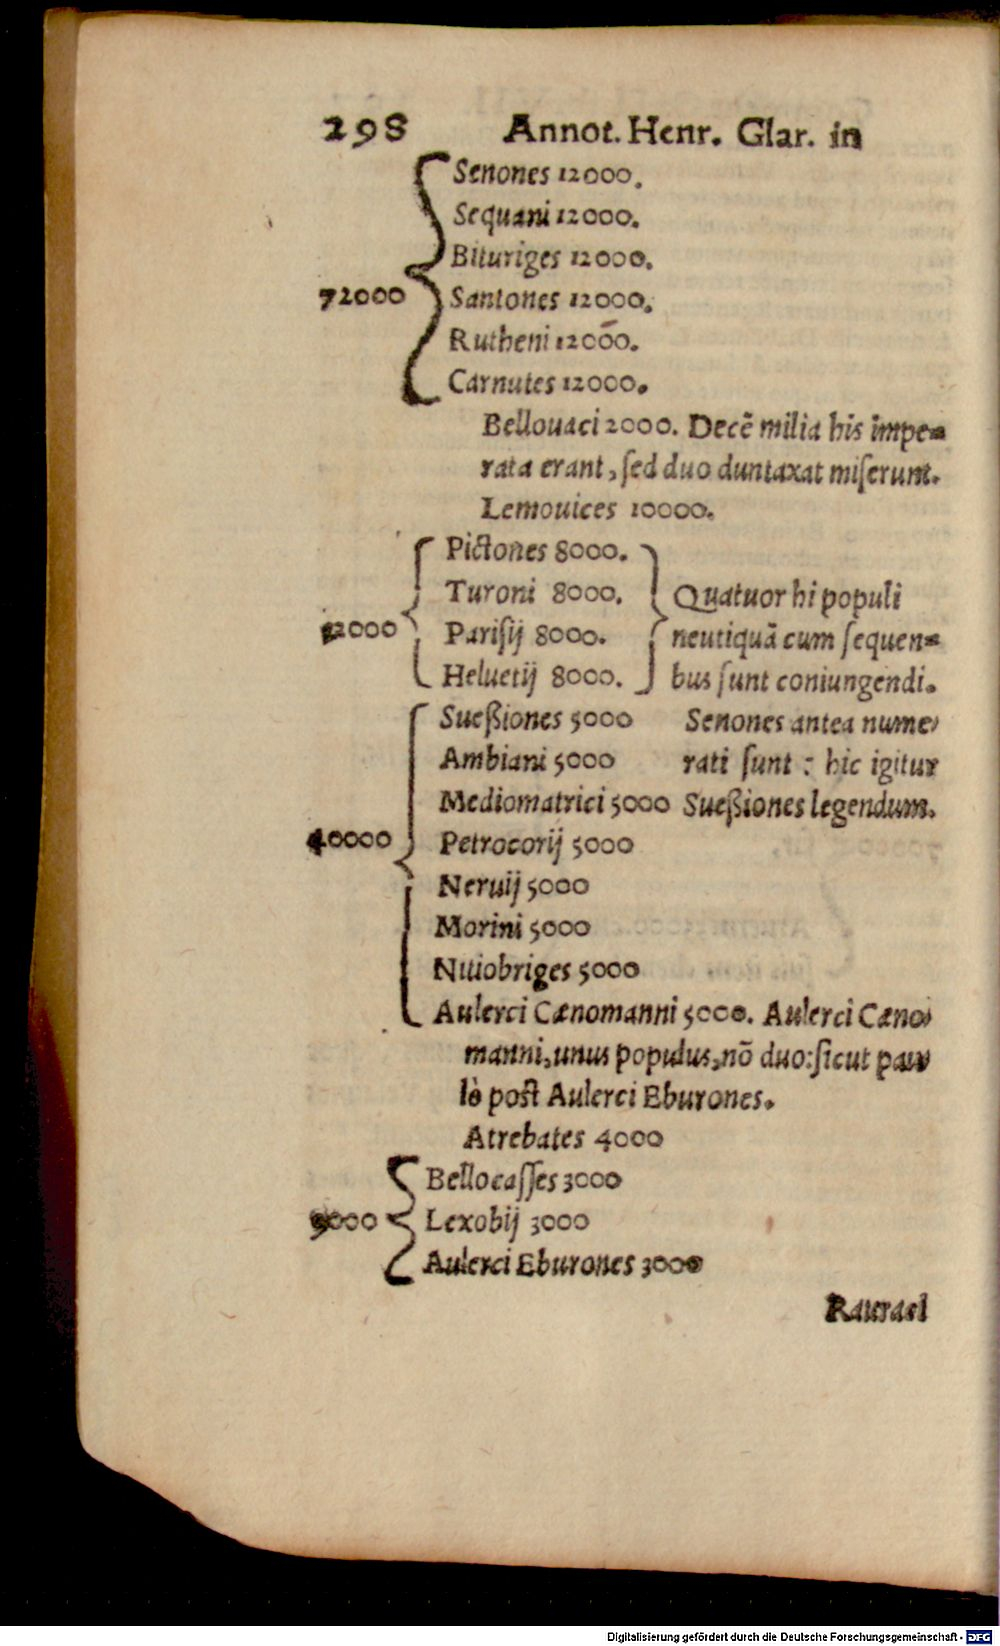 298 Annot. Henr. Glar. in
Senones 12000.
Sequani 12000.
Bituriges 12000.
72000 Santones 12000.
Rutheni 12000.
Carnutes 12000.
Bellouaci 2000. Decē milia his impe=
rata erant, ſed duo duntaxat miſerunt.
Lemouices 10000.
Pictones 8000.
Turoni 8000. Quatuor hi populi
32000 Pariſij 8000. neutiquā cum ſequen=
Heluetij 8000. bus ſunt coniungendi.
Sueßiones 5000 Senones antea nume/
Ambiani 5000 rati ſunt : hic igitur
Mediomatrici 5000 Sueßiones legendum.
40000 Petrocorij 5000
Neruij 5000
Morini 5000
Nitiobriges 5000
Aulerci Cænomanni 5000. Aulerci Cæno/
manni, unus populus, nō duo: ſicut pau/
lò poſt Aulerci Eburones.
Atrebates 4000
Bellocaſſes 3000
9000 Lexobij 3000
Aulerci Eburones 3000
Rauraci
Digitalisierung gefördert durch die Deutsche Forschungsgemeinschaft - DFG